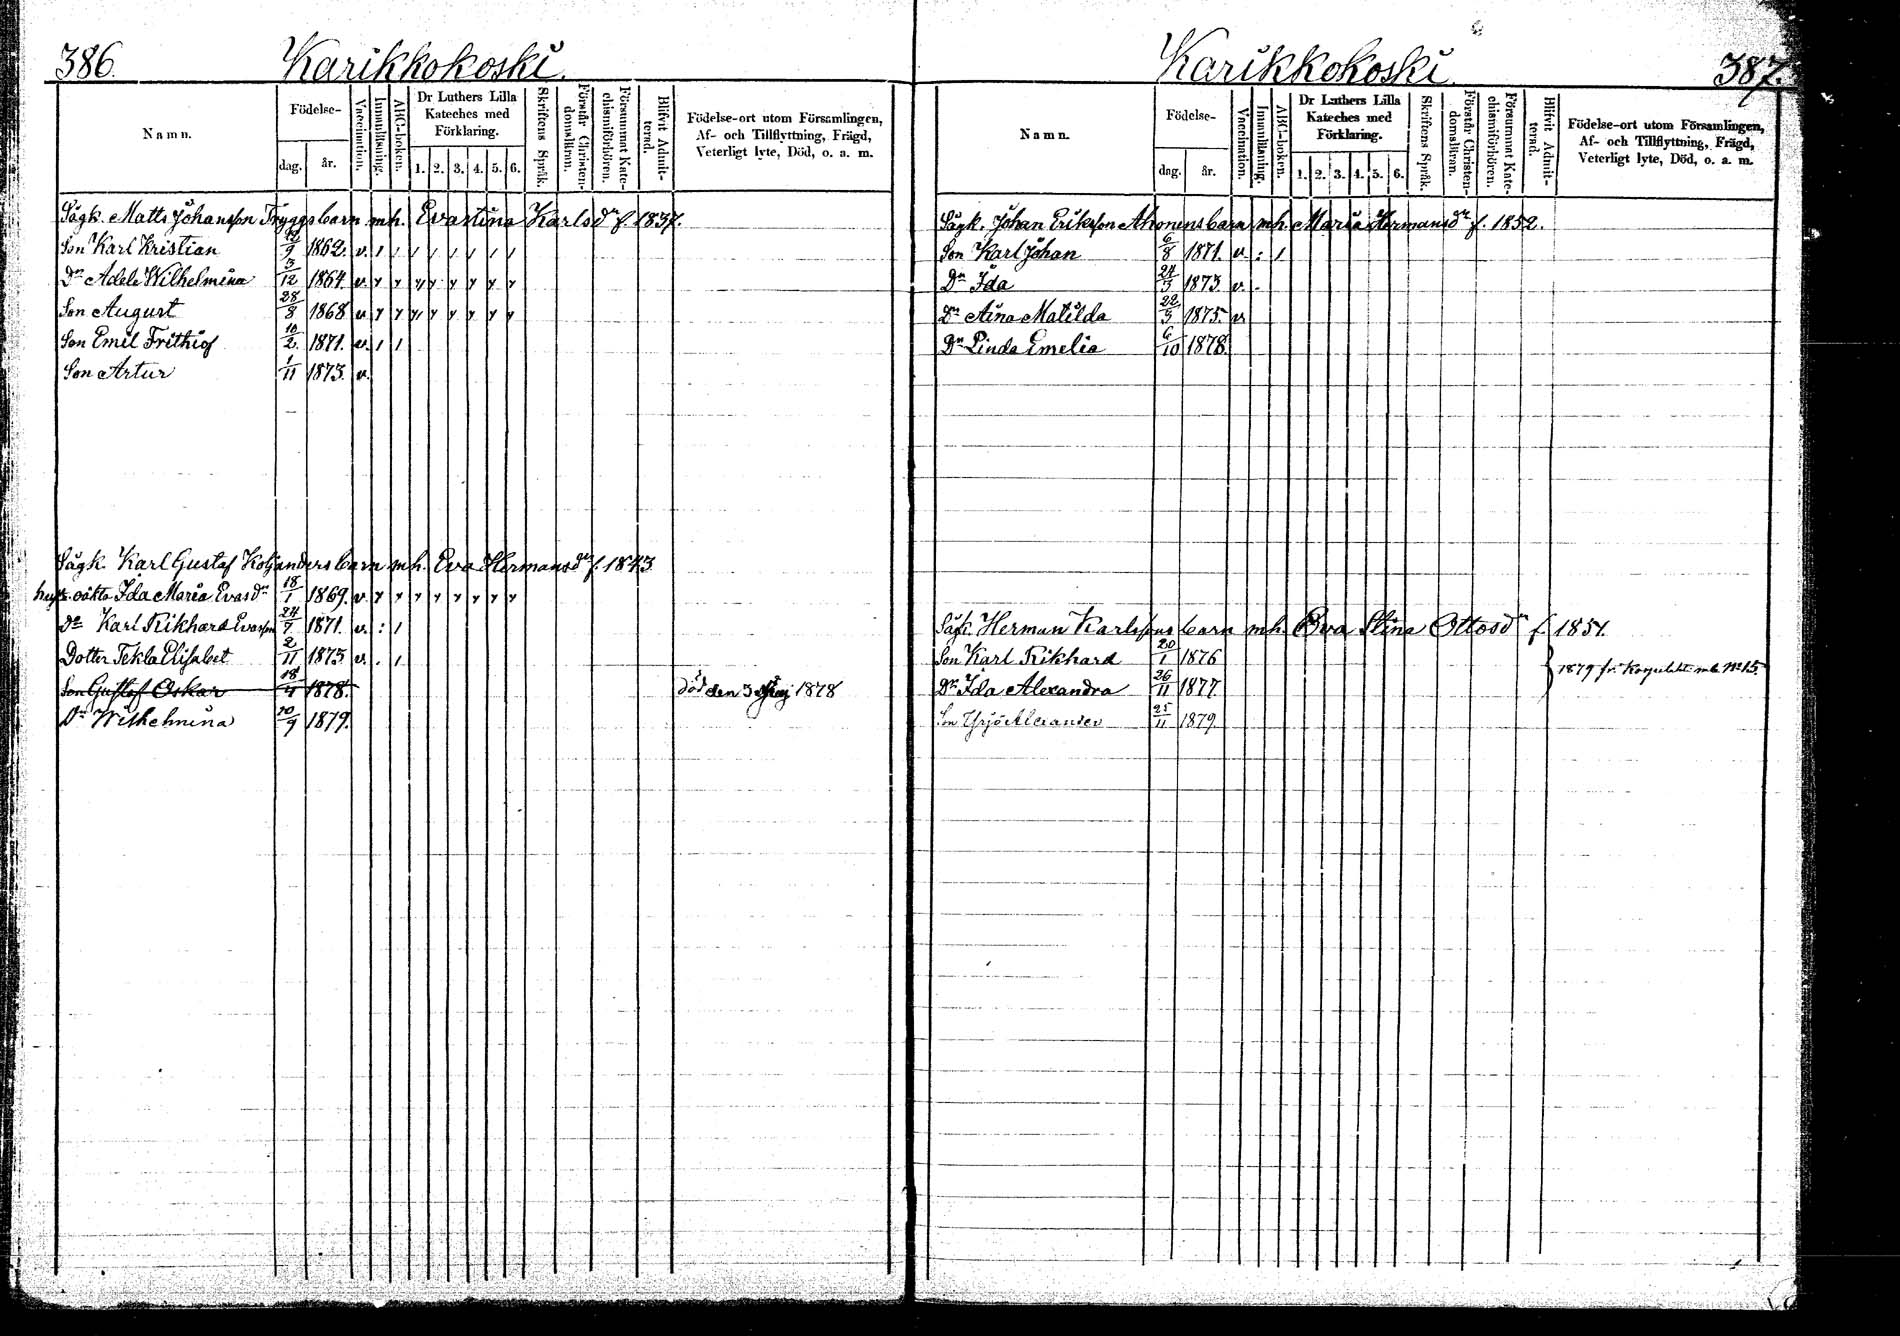 386.
Karikkokoski.
Namn.
Födelse-
dag.
år.
Vaccination.
Innanläsning.
ABC-boken.
Dr Luthers Lilla Kateches med Förklaring.
1. 2. 3. 4. 5. 6.
Skriftens Språk.
Förstår Christendomsläran.
Försummat Katechismiförhören.
Blifvit Admitterad.
Födelse-ort utom Församlingen,
Af- och Tillflyttning, Frägd,
Veterligt lyte, Död, o. a. m.
Sågk. Matts Johansson Tryggs barn mh. Evastina Karlsdr f. 1837.
Son Karl Kristian 12/9 1862. v. / / / / / / / /
Dr Adele Wilhelmina 3/12 1864. v. y y y y y y y y
Son August 28/8 1868 v. y y y y y y y y
Son Emil Frithiof 10/2 1871. v. / /
Son Artur 1/11 1873. v.
Sågk. Karl Gustaf Koljanders barn mh. Eva Hermansdr f. 1843
oäkta Ida Maria Evasdr 18/1 1869. v. y y y y y y y y
Do Karl Rikhard Evasson 24/7 1871. v. : /
Dotter Tekla Elisabet 2/11 1875 v. . /
Son Gustaf Oskar 18/4 1878. död den 3 Maj 1878
Dr Wilhelmina 20/9 1879.
Karikkokoski.
387.
Namn.
Födelse-
dag.
år.
Vaccination.
Innanläsning.
ABC-boken.
Dr Luthers Lilla Kateches med Förklaring.
1. 2. 3. 4. 5. 6.
Skriftens Språk.
Förstår Christendomsläran.
Försummat Katechismiförhören.
Blifvit Admitterad.
Födelse-ort utom Församlingen,
Af- och Tillflyttning, Frägd,
Veterligt lyte, Död, o. a. m.
Sågk. Johan Eriksson Ahonens barn mh. Maria Hermansdr f. 1852.
Son Karl Johan 6/8 1871. v. : /
Dr Ida 24/3 1873 v. .
Dr Aina Matilda 22/5 1875. v
Dr Linda Emelia 6/10 1878.
Sågk. Herman Karlssons barn mh. Eva Stina Ottosdr f. 1854.
Son Karl Rikhard 20/1 1876
1879 fr. mb. No 15.
Dr Ida Alexandra 26/11 1877.
Son Yrjö Alexander 25/11 1879.